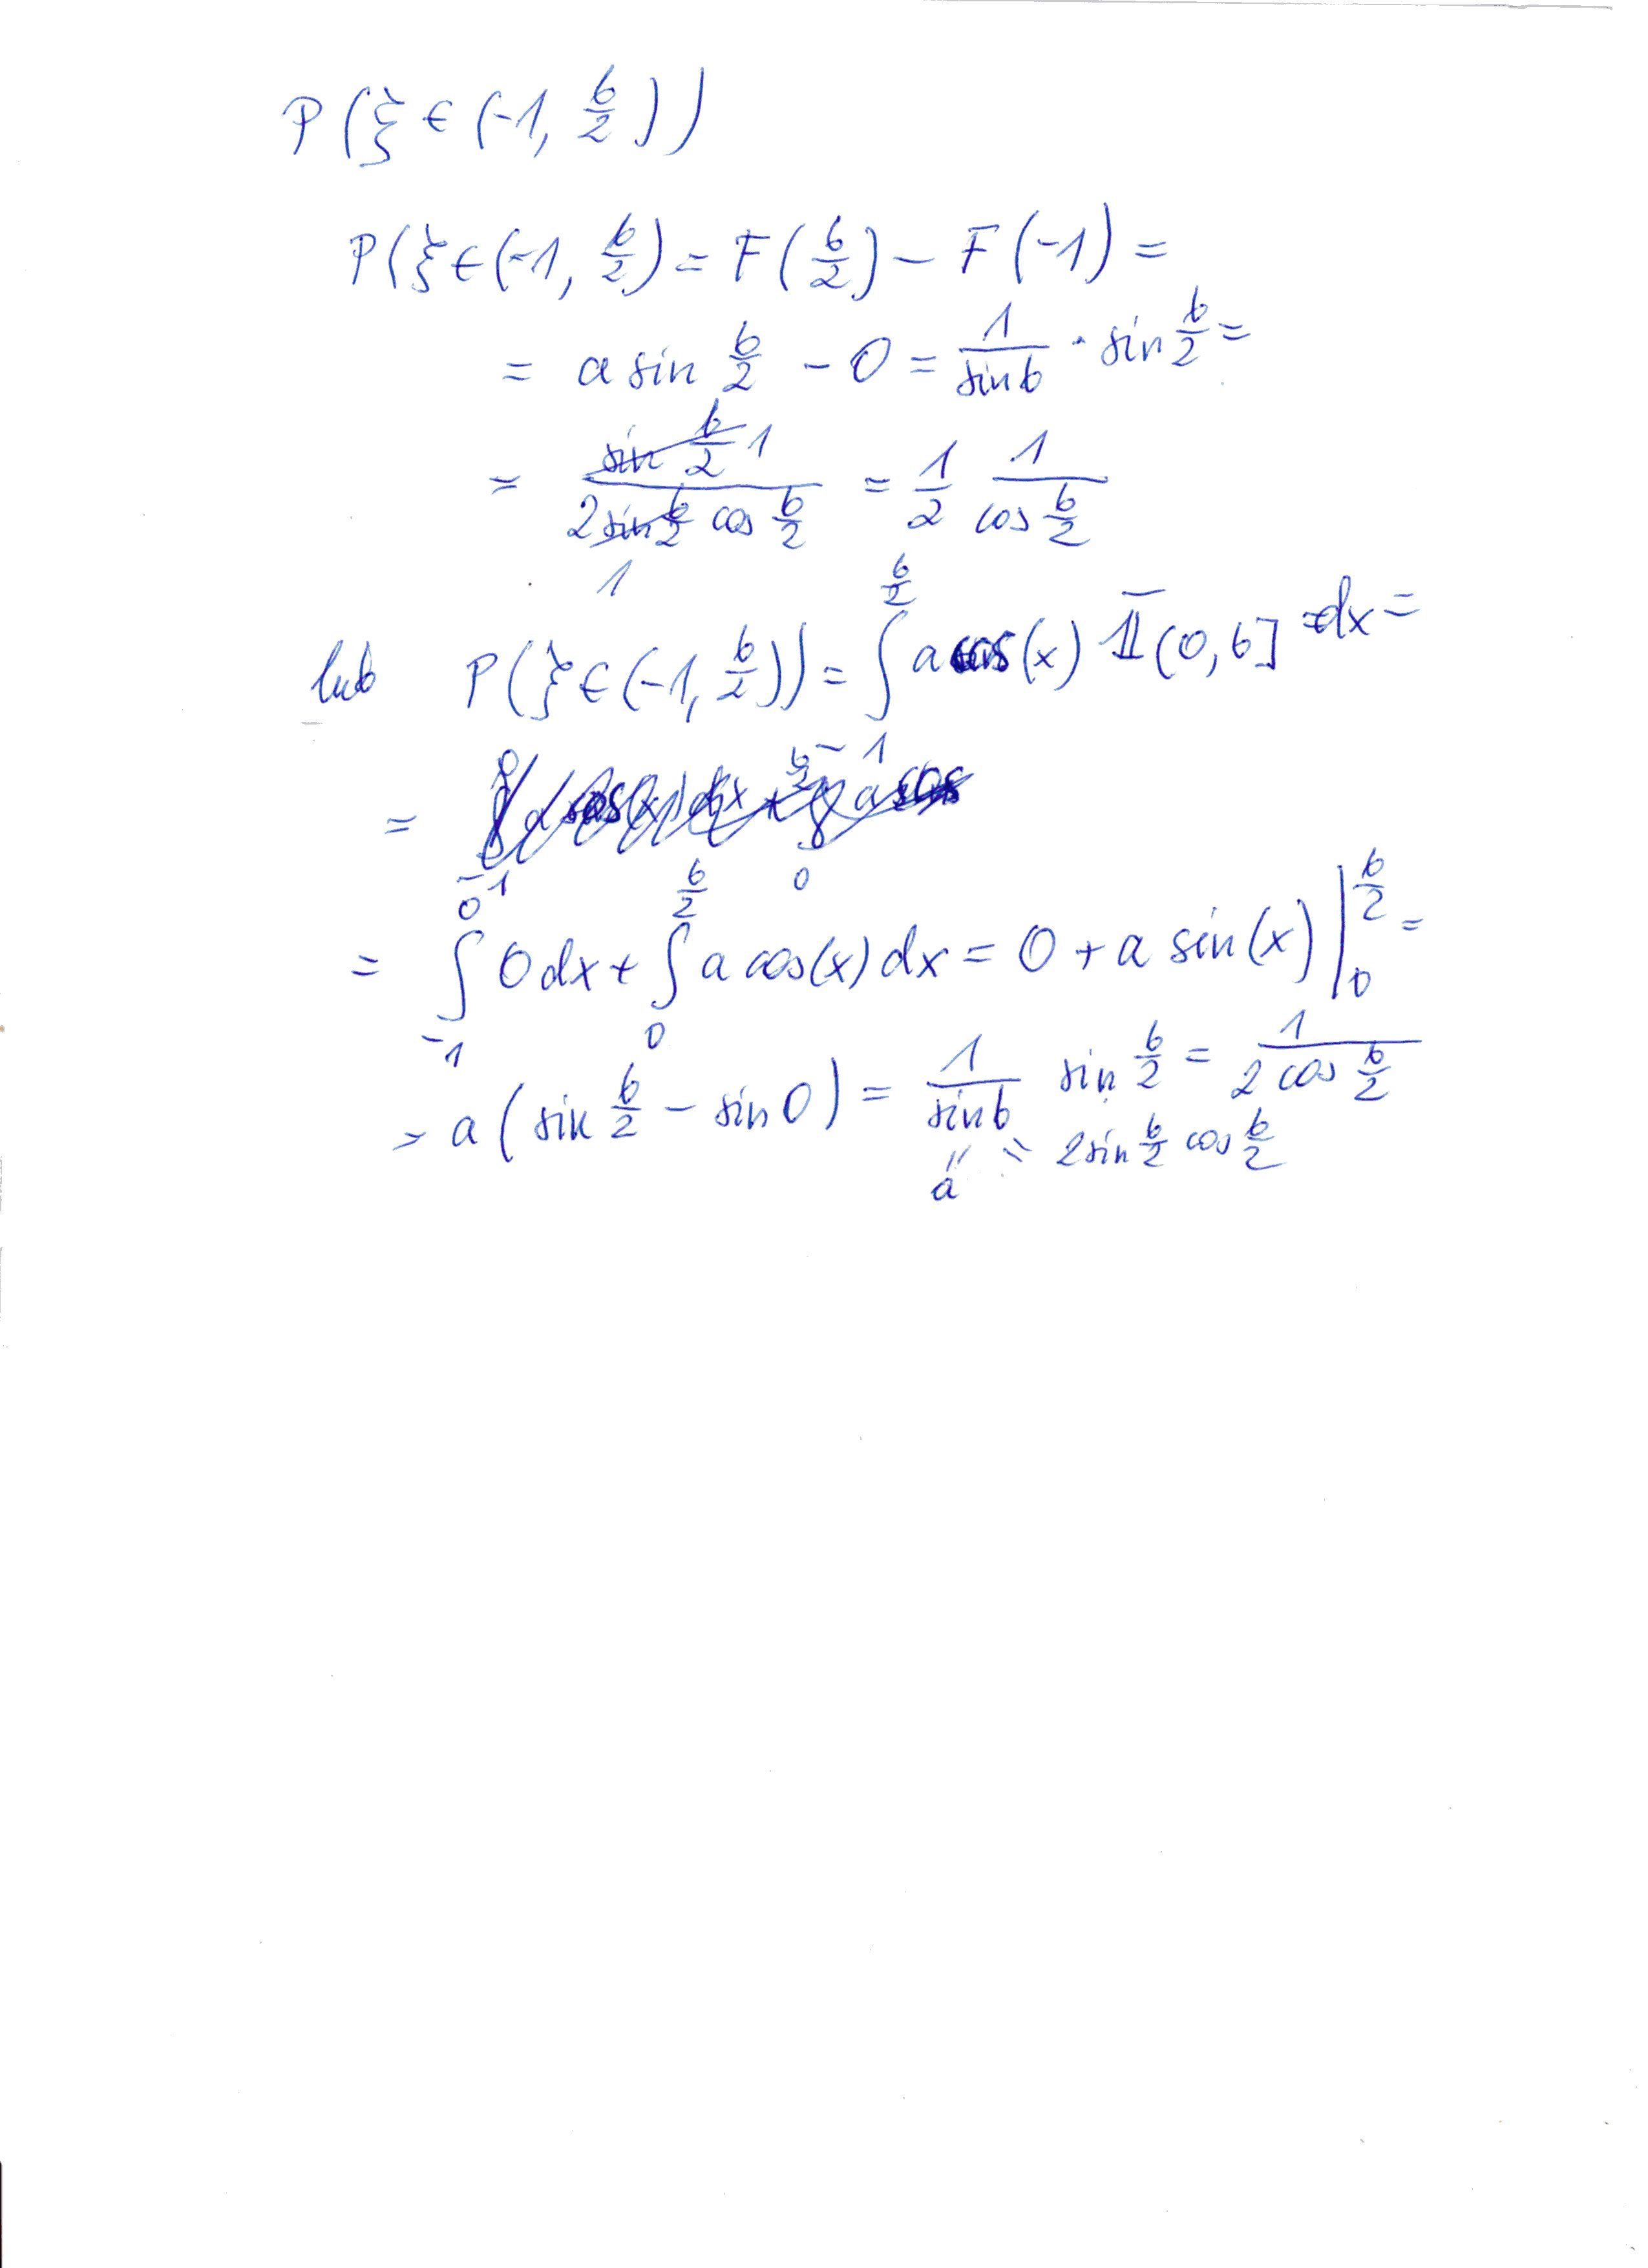 P(ξ ∈ (-1, b/2))
P(ξ ∈ (-1, b/2) = F(b/2) - F(-1) =
= a sin b/2 - 0 = 1/sin b · sin b/2 =
= sin b/2 1 / 2 sin b/2 cos b/2 = 1/2 1/cos b/2
1
lub P(ξ ∈ (-1, b/2)) = ∫_{-1}^{b/2} a cos(x) 𝟙(0, b] dx =
=
= ∫_{-1}^{0} 0 dx + ∫_{0}^{b/2} a cos(x) dx = 0 + a sin(x) |_{0}^{b/2} =
= a (sin b/2 - sin 0) = 1/sin b sin b/2 = 1/2 cos b/2
" a = 2 sin b/2 cos b/2